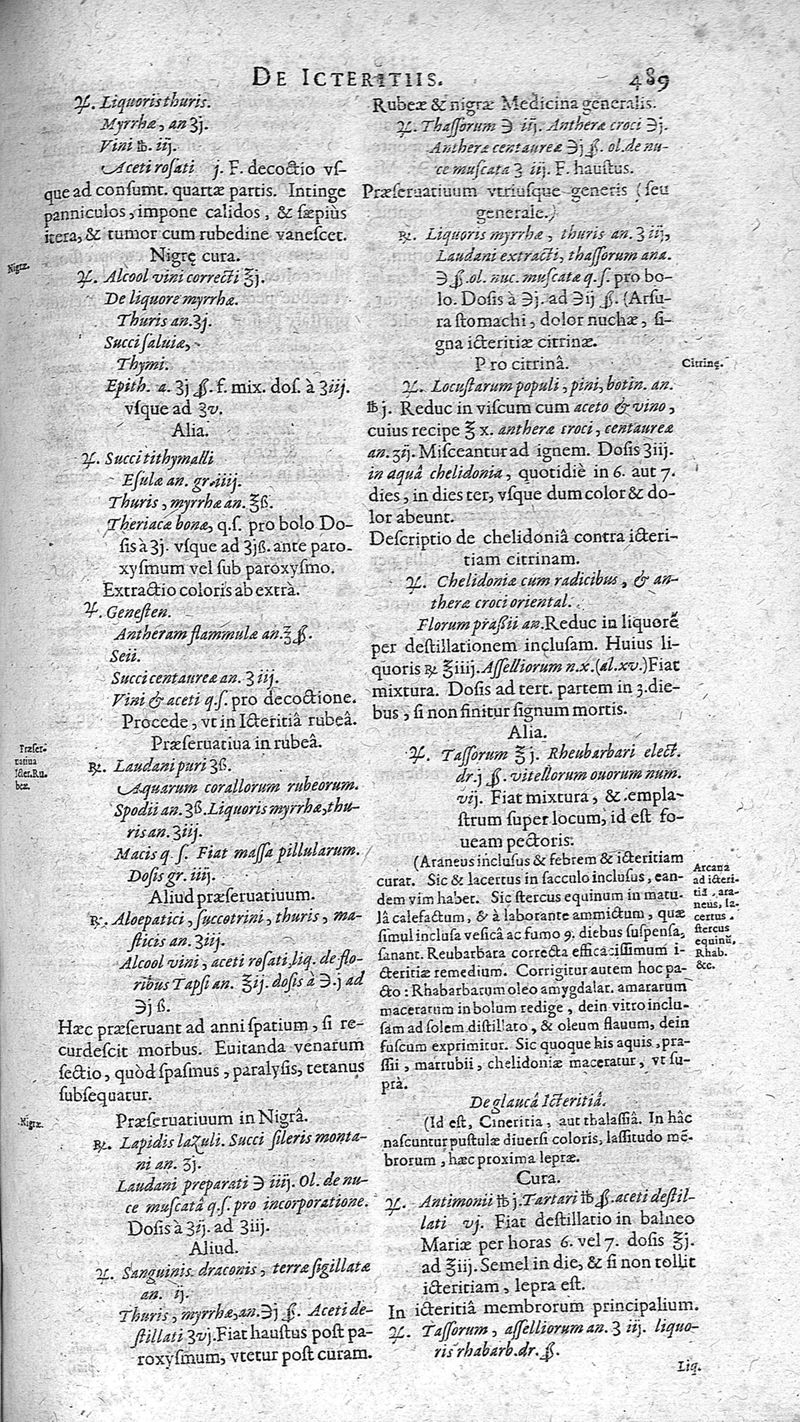 DE ICTERITIIS.
489
♃. Liquoris thuris.
Myrrhæ, an ʒj.
Vini ℔. iij.
Aceti rosati j. F. decoctio vſ-
que ad conſumt. quartæ partis. Intinge
panniculos, impone calidos, & ſæpiùs
itera, & tumor cum rubedine vaneſcet.
Nigrę cura.
Nigræ.
♃. Alcool vini correcti ℥j.
De liquore myrrhæ.
Thuris an.ʒj.
Succi ſaluiæ,
Thymi.
Epith. a. ʒj ß. f. mix. doſ. à ʒiij.
vſque ad ʒv.
Alia.
♃. Succi tithymalli
Eſulæ an. gr. iiij.
Thuris, myrrhæ an. ℥ß.
Theriacæ bonæ, q.ſ. pro bolo Do-
ſis à ʒj. vſque ad ʒjß. ante paro-
xyſmum vel ſub paroxyſmo.
Extractio coloris ab extrà.
♃. Geneſten.
Antheram flammulæ an.℥ ß.
Seii.
Succi centaureæ an. ʒ iij.
Vini & aceti q.ſ. pro decoctione.
Procede, vt in Icteritiâ rubeâ.
Præſeruatiua in rubeâ.
Præſer-
uatiua
Icter. Ru-
beæ.
℞. Laudani puri ʒß.
Aquarum corallorum rubeorum.
Spodii an. ʒß. Liquoris myrrhæ, thu-
ris an. ʒiij.
Macis q. ſ. Fiat maſſa pillularum.
Doſis gr. iij.
Aliud præſeruatiuum.
℞. Aloepatici, ſuccotrini, thuris, ma-
ſticis an. ʒiij.
Alcool vini, aceti roſati, liq. de flo-
ribus Tapſi an. ℥ij. doſis à ℈.j ad
℈j ß.
Hæc præſeruant ad anni ſpatium, ſi re-
curdeſcit morbus. Euitanda venarum
ſectio, quòd ſpaſmus, paralyſis, tetanus
ſubſequatur.
Præſeruatiuum in Nigrâ.
Nigræ.
℞. Lapidis lazuli. Succi ſileris monta-
ni an. ʒj.
Laudani preparati ℈ iiij. Ol. de nu-
ce muſcatâ q.ſ. pro incorporatione.
Doſis à ʒij. ad ʒiij.
Aliud.
♃. Sanguinis draconis, terræ ſigillatæ
an. ij.
Thuris, myrrhæ, an.℈j ß. Aceti de-
ſtillati ʒvj. Fiat hauſtus poſt pa-
roxyſmum, vtetur poſt curam.
Rubeæ & nigræ Medicina generalis.
♃. Thaſſorum ℈ iij. Antheræ croci ℈j.
Antheræ centaureæ ℈j ß. ol. de nu-
ce muſcata ʒ iij. F. hauſtus.
Præſeruatiuum vtriuſque generis (ſeu
generale.)
℞. Liquoris myrrhæ, thuris an. ʒ iij,
Laudani extracti, thaſſorum ana.
℈ ß. ol. nuc. muſcatæ q.ſ. pro bo-
lo. Doſis à ℈j. ad ℈ij ß. (Arſu-
ra ſtomachi, dolor nuchæ, ſi-
gna icteritiæ citrinæ.
Pro citrinâ.
Citrinę.
♃. Locuſtarum populi, pini, botin. an.
℔ j. Reduc in viſcum cum aceto & vino,
cuius recipe ℥ x. antheræ croci, centaureæ
an. ʒij. Miſceantur ad ignem. Doſis ʒiij.
in aquâ chelidonia, quotidiè in 6. aut 7.
dies, in dies ter, vſque dum color & do-
lor abeunt.
Deſcriptio de chelidoniâ contra icteri-
tiam citrinam.
♃. Chelidoniæ cum radicibus, & an-
theræ croci oriental.
Florum praßii an. Reduc in liquorē
per deſtillationem incluſam. Huius li-
quoris ℞ ℥iiij. Aſſelliorum n.x. (al.xv.) Fiat
mixtura. Doſis ad tert. partem in 3. die-
bus, ſi non finitur ſignum mortis.
Alia.
♃. Taſſorum ℥ j. Rheubarbari elect.
dr.j ß. vitellorum ouorum num.
vij. Fiat mixtura, & empla-
ſtrum ſuper locum, id eſt fo-
ueam pectoris.
(Araneus incluſus & febrem & icteritiam
curat. Sic & lacertus in ſacculo incluſus, ean-
dem vim habet. Sic ſtercus equinum in matu-
lâ calefactum, & à laborante ammictum, quæ
ſimul incluſa veſicâ ac fumo 9. diebus ſuſpenſa,
ſanant. Reubarbara correcta efficaciſſimum i-
cteritiæ remedium. Corrigitur autem hoc pa-
cto: Rhabarbarum oleo amygdalar. amararum
maceratum in bolum redige, dein vitro inclu-
ſam ad ſolem diſtillato, & oleum flauum, dein
fuſcum exprimitur. Sic quoque his aquis, pra-
ſſii, marrubii, chelidoniæ maceratur, vt ſu-
prà.
Arcana
ad icteri-
tiā, ara-
neus, la-
certus.
ſtercus
equinū,
Rhab.
&c.
De glaucâ Icteritiâ.
(Id eſt, Cineritia, aut thalaſſiâ. In hâc
naſcuntur puſtulæ diuerſi coloris, laſſitudo mē-
brorum, hæc proxima lepræ.
Cura.
♃. Antimonii ℔ j. Tartari ℔ ß. aceti deſtil-
lati vj. Fiat deſtillatio in balneo
Mariæ per horas 6. vel 7. doſis ℥j.
ad ℥iij. Semel in die, & ſi non tollit
icteritiam, lepra eſt.
In icteritiâ membrorum principalium.
♃. Taſſorum, aſſelliorum an. ʒ iij. liquo-
ris rhabarb. dr. ß.
Liq.